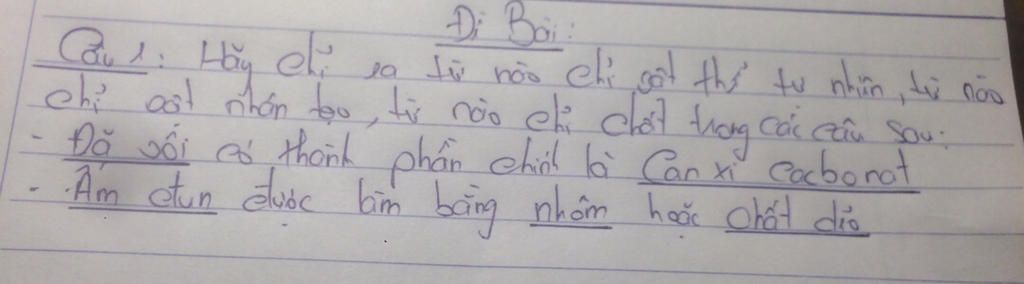 Đề Bài:
Câu 1: Hãy chỉ ra từ nào chỉ vật thể tự nhiên, từ nào
chỉ vật nhân tạo, từ nào chỉ chất trong các câu sau:
- Đá vôi có thành phần chính là Canxi cacbonat
- Ấm đun được làm bằng nhôm hoặc chất dẻo